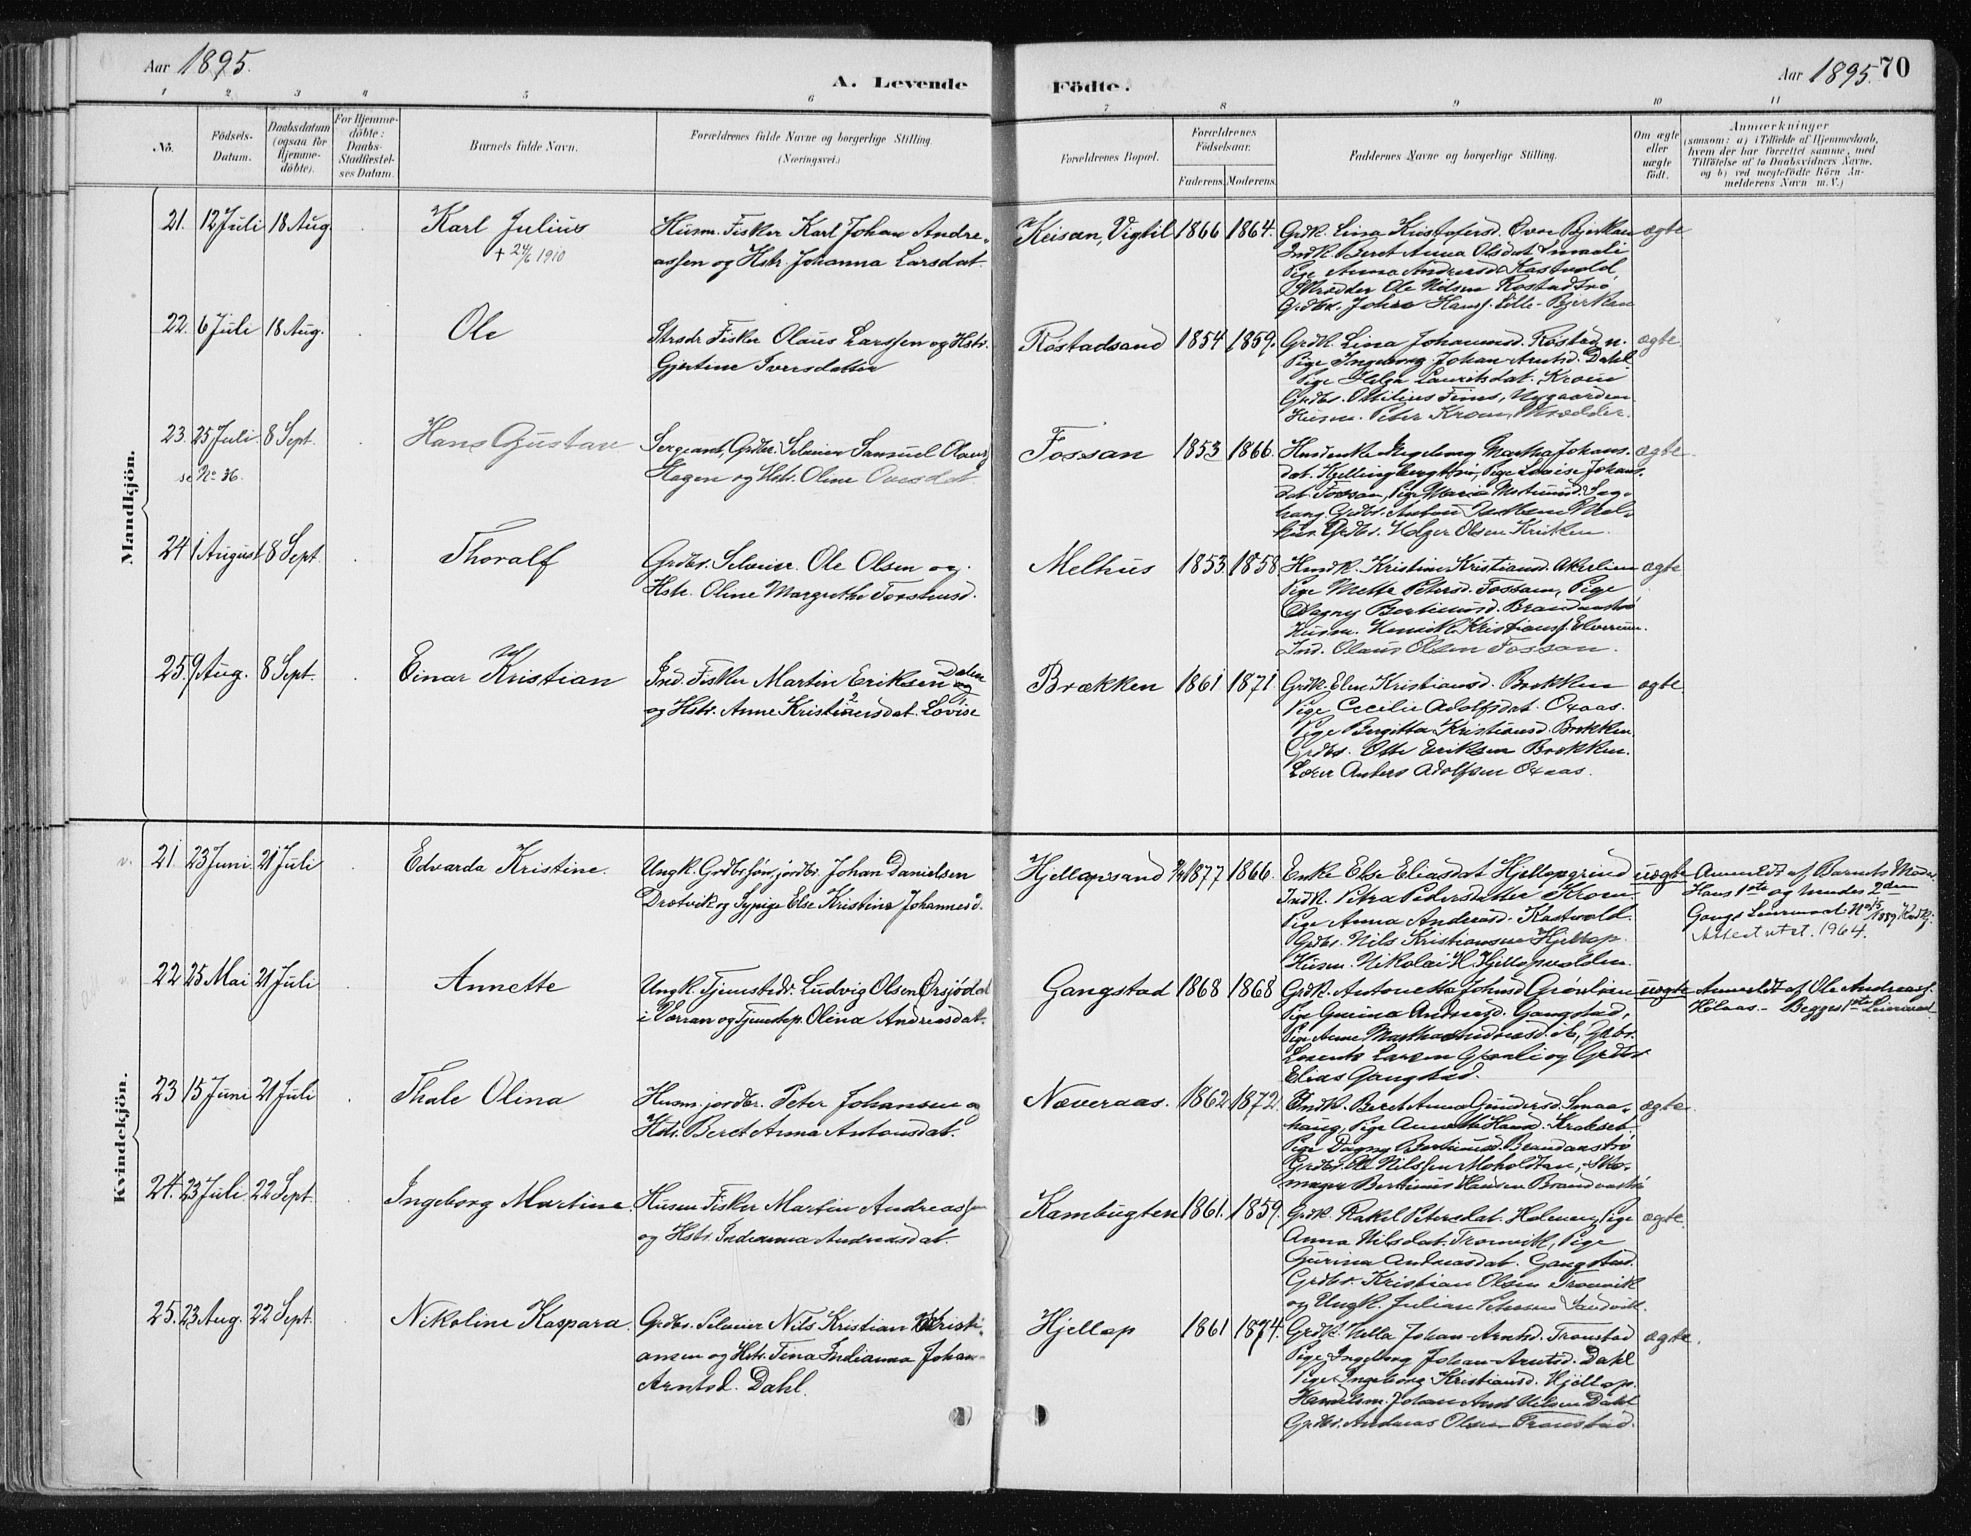 Aar 1895.
A. Levende
Födte.
Aar 1895. 70
1 2 3 4 5 6 7 8 9 10 11
No.
Födsels-
Datum.
Daabsdatum
(ogsaa for
Hjemme-
döbte).
For Hjemme-
döbte:
Daabs-
Stadfæstel-
ses Datum.
Barnets fulde Navn.
Forældrenes fulde Navne og borgerlige Stilling.
(Næringsvei.)
Forældrenes Bopæl.
Forældrenes
Födselsaar.
Faderens. Moderens.
Faddernes Navne og borgerlige Stilling.
Om ægte
eller
uægte
födt.
Anmærkninger
(saasom: a) i Tilfælde af Hjemmedaab,
hvem der har forrettet samme, med
Tilföielse af to Daabsvidners Navne,
og b) ved uægtefödte Börn An-
melderens Navn m. V.)
Mandkjön.
21. 12 Juli 18 Aug.
Karl Julius
+ 24/6 1910
Husm. Fisker Karl Johan Andre-
assen og Hstr. Johanna Larsdat.
Keisan, Vigtil 1866 1864.
Grdk. Lina Kristofersd. Bjerkan
Indk. Beret Anna Olsdat
Pige Anna Andersd. Kastvold,
Ole Nilsen Rostadtrö
Grdbr. Johan Hansf. Lille-Bjerken
ægte
22. 6 Juli 18 Aug.
Ole
Strsdr. Fisker Olaus Larssen og Hstr.
Gjertine Iversdatter
Röstadsand 1854 1859.
Grdk. Lina Johannesd. Rostad n.
Pige Ingeborg Johan-Arntsd. Dahl
Pige Helga Lauritsdat. Kroen
Grdbr. Ottilius Fines, Nygaarden
Husm. Peter Kroen,
ægte.
23. 25 Juli 8 Sept.
se No 36.
Hans Gustav
Sergeant, Grdbr. Selveier Samuel Olaus
Hagen og Hstr. Oline Ovesdat.
Fossan 1853 1866.
Ingeborg Martha Johans-
dat. Kjellingbergtrö, Pige Lovise Johans-
dat. Fossan, Pige Maria
Grdbr. Anton Mel-
hus. Grdbr. Holger Olsen Kvitken.
ægte
24 1 August 8 Sept
Thoralf
Grdbr. Selveier. Ole Olsen og
Hstr. Oline Margrethe Torstensd.
Melhus 1853 1858.
Husk. Kristine Kristiansd. Akerlien
Pige Mette Petersd. Fossan, Pige
Dagny Bertinusd. Brandaaströ
Husm. Henrik Kristiansf. Elverum.
Ind. Olaus Olsen Fossan.
ægte
25. 9 Aug. 8 Sept.
Einar Kristian
Ind. Fisker Martin Eriksen Dalen
og Hstr. Anne Kristinersdat. Lovise
Brækken 1861 1871
Grdk. Elen Kristiansd. Brekken
Pige Cecilie Adolfsdat. Oxaas.
Pige Bergitta Kristiansd. Brekken
Grdbr. Otte Eriksen Brekken.
Lærer Anders Adolfsen Oxaas.
ægte
Kvindekjön.
v. 21 23 Juni 21 Juli
Edvarda Kristine.
Ungk. Grdbrsön, jordbr. Johan Danielsen
Dretvik og Sypige Else Kristine Johannesd.
Hjellopsand 1877 1866.
Enke Else Eliasdat Hjellopgrind
Indk. Petra Petersdatter Kroen
Pige Anna Andersd. Kastvold.
Grdbr. Nils Kristiansen Hjellop.
Husm. Nikolai H. Hjellopvolden.
uægte
Anmeldt af Barnets Moder.
Hans 1ste og hendes 2den
Gangs Leiermaal. No 15 1889
Attest utst. 1964.
v. 22 25 Mai 21 Juli
Annette
Ungk. Tjenstedr. Ludvig Olsen Örsjödal
i Værran og Tjenstep. Olina Andreasdat.
Gangstad 1868 1868
Grdk. Antonetta Johnsd Grönlien
Pige Gurina Andreasd. Gangstad,
Pige Anne Martha Andreasd. ib, Grdbr.
Lorents Larsen Grönli og Grdbr
Elias Gangstad.
uægte
Anmeldt af Ole Andreasf.
Hölaas - Begges 1ste Leiermaal
23 15 Juni 21 Juli
Thale Olina
Husm. jordbr. Peter Johansen og
Hstr. Beret Anna Antonsdat.
Næveraas. 1862 1872.
Indk. Beret Anna Gundersd. Smaa-
haug, Pige Annette Hansd. Krokset
Pige Dagny Bertinusd. Brandaaströ
Grdbr. Ole Nilssen Moholdtan, Sko-
mager Bertinus Hansen Brandaaströ
ægte.
24. 23 Juli 22 Sept.
Ingeborg Martine.
Husm Fisker Martin Andreassen
og Hstr. Indianna Andreasdat.
Kambugten 1861. 1859.
Grdk. Rakel Petersdat. Holmen, Pige
Anna Nilsdat. Tronvik, Pige
Gurina Andreasdat. Gangstad.
Grdbr. Kristian Olsen Tronvik
og Ungk. Julian Petersen Sandvik
ægte.
25. 23 Aug. 22 Sept.
Nikoline Kaspara.
Grdbr. Selveier Nils Kristian Kristi-
ansen og Hstr. Tina Indianna Johan-
Arntsd. Dahl.
Hjellop 1861 1874.
Grdk. Nella Johan-Arntsd. Tronstad
Pige Ingeborg Johan-Arntsd. Dahl
Pige Ingeborg Kristiansd. Hjellop.
Handelsm. Johan Arnt Nilsen Dahl
Grdbr. Andreas Olsen Tronstad.
ægte.